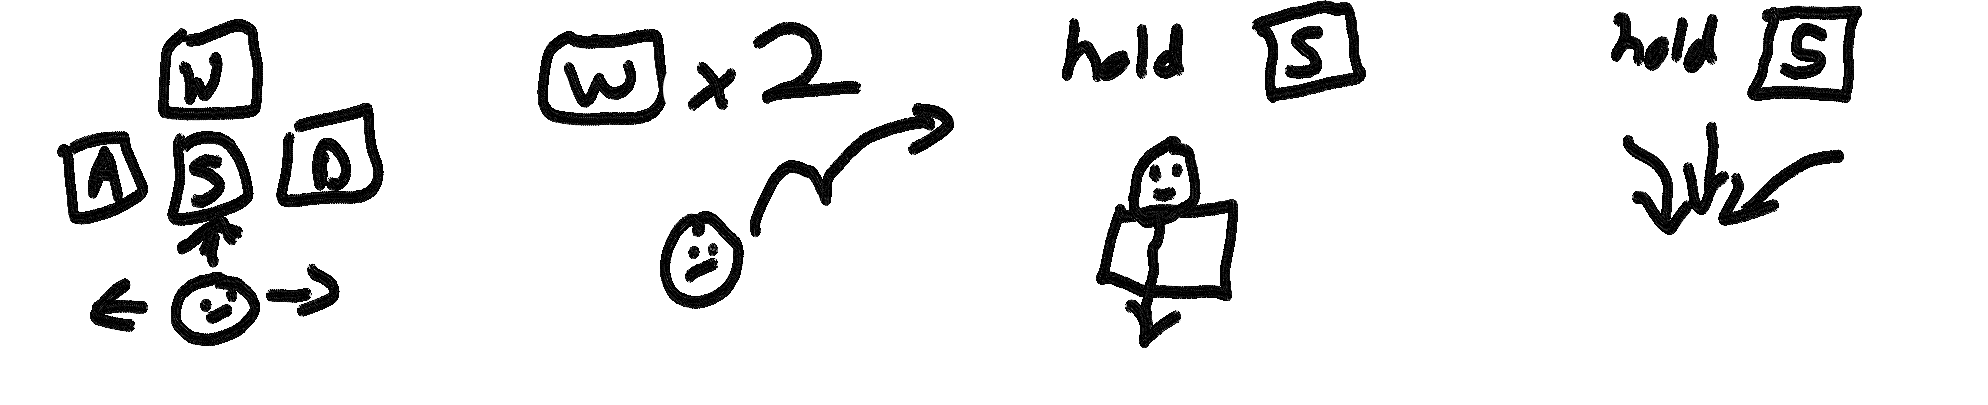 W
A S D
W x 2
hold S
hold S